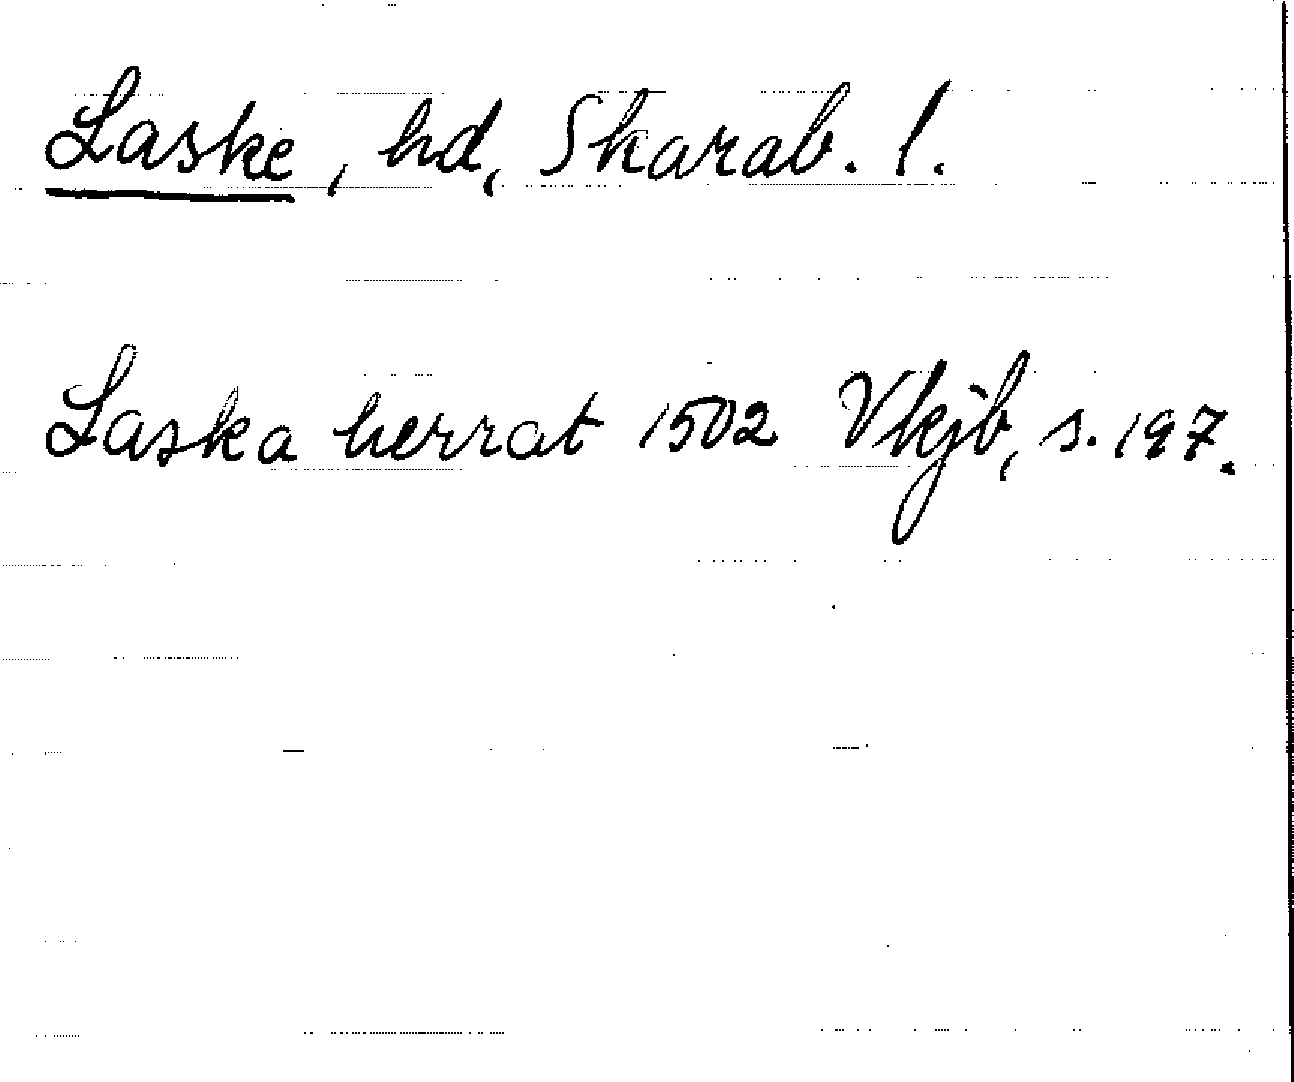 Laske, hd, Skarab. l.
Laska herrat 1502 Vkjb, s. 197.